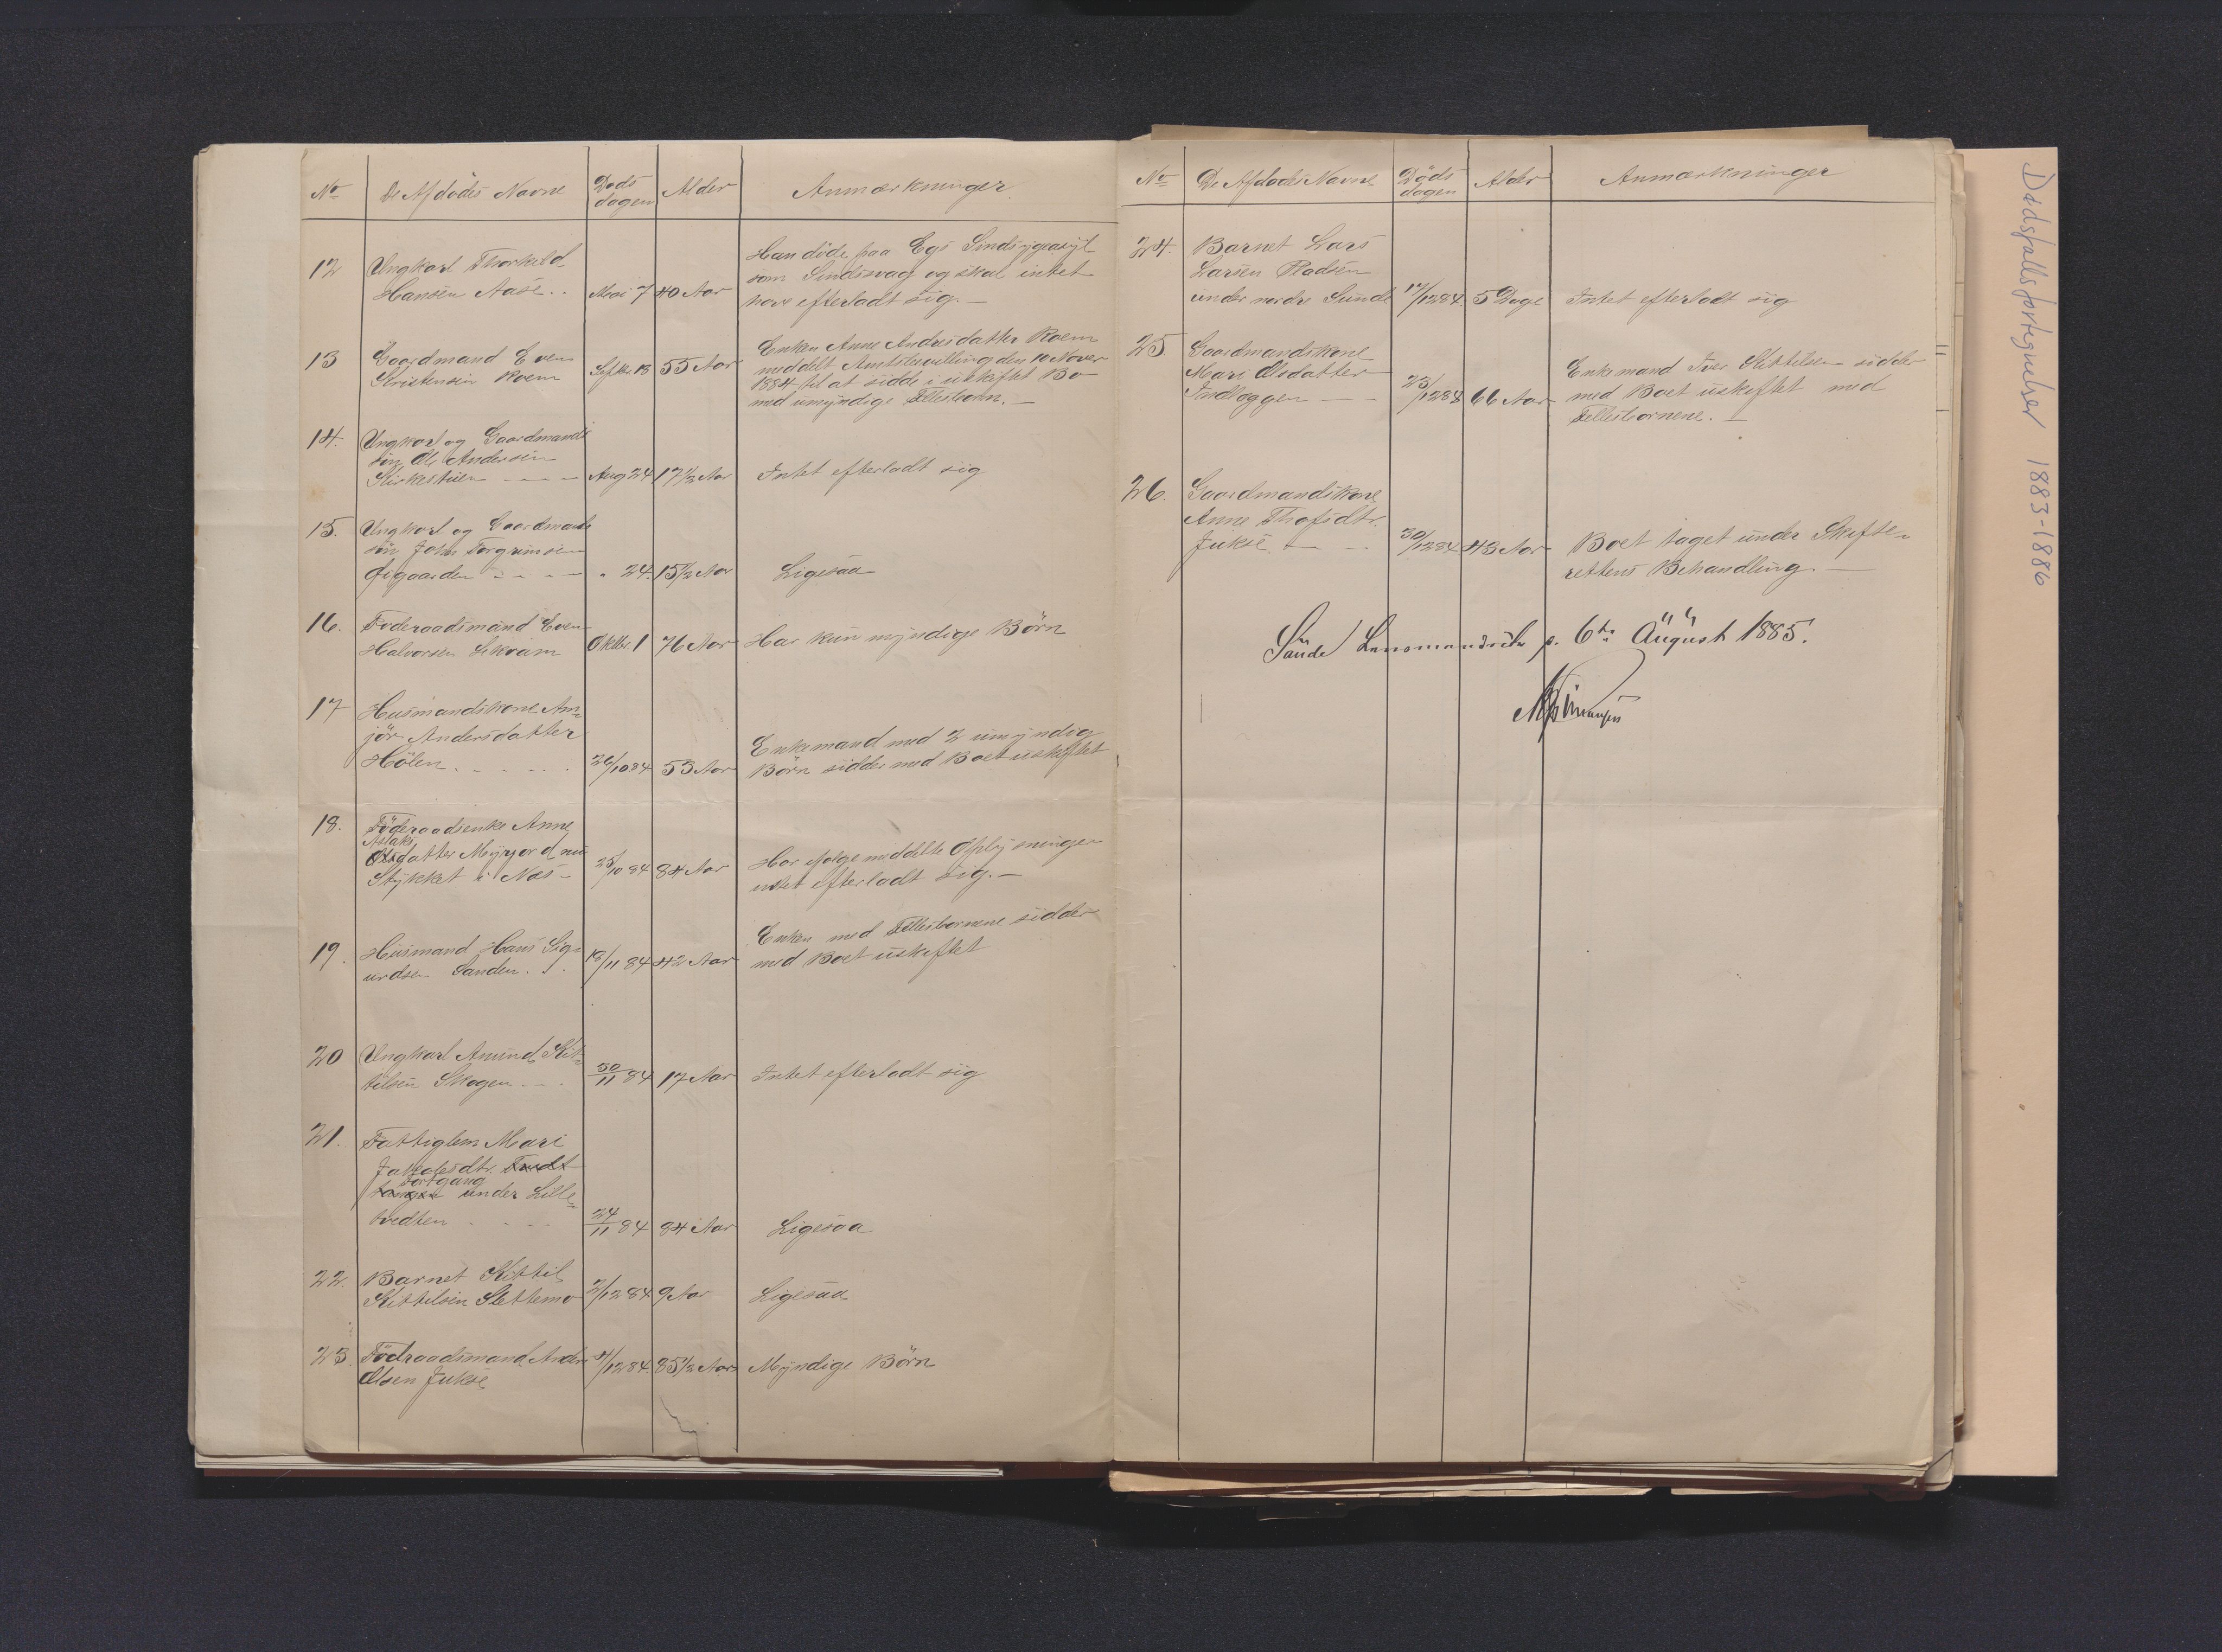 No De Afdödes Navne Döds dagen Alder Anmærkninger.
12 Ungkarl Thorkild Hansen Aase .. Mai 7 40 Aar Han döde paa Egs Sindsygeasyl
som Sindssvag og skal intet
have efterladt sig. —
13 Gaardmand Even
Kristensen Roem Septbr. 13 55 Aar Enken Anne Andersdatter Roem
meddelt Amtsbevilling den 10 Novbr
1884 til at sidde i uskiftet Bo
med umyndige Fellesbörn. —
14. Ungkarl og Gaardmands
sön Ole Andersen
Kirkestuen - - - Aug 24 17 1/2 Aar Intet efterladt sig
15. Ungkarl og Gaardmands
sön John Torgrimsen
Øigaarden - - - - " 24. 15 1/2 Aar Ligesaa
16. Föderaadsmand Even
Halvorsen Lekvam Oktbr. 1 76 Aar Har kun myndige Börn
17 Husmandskone An-
jör Andersdatter
Hölen . - - - . 26/10 84 53 Aar Enkemand med 2 umyndige
Börn sidder med Boet uskiftet
18. Föderaadsenke Anne
Aslaks
datter Myrjord nu
Stykket i Næs - 25/10 84 84 Aar Har ifölge meddelte Oplysninger
intet efterladt sig. —
19. Husmand Hans Sig-
urdsen Sanden . . 18/11 84 42 Aar Enken med Fellesbörnene sidder
med Boet uskiftet
20 Ungkarl Amund Kit-
tilsen Skogen - - . 30/11 84 17 Aar Intet efterladt sig
21. Fattiglem Mari
Jakobsdtr. Tvedt
Fortgang
tangen under Lille-
tvedten . - - . 24/11 84 84 Aar Ligesaa
22. Barnet Kittil
Kittilsen Slettemo 2/12 84 9 Aar Ligesaa
23. Födraadsmand Anders
Olsen Jukse 4/12 84. 85 1/2 Aar Myndige Börn
No De Afdödes Navne Döds dagen Alder Anmærkninger
24. Barnet Lars
Larsen Pladsen
under nordre Sunde 17/12 84 5 Dage Intet efterladt sig
25. Gaardmandskone
Mari Olsdatter
Indlaggen - - 23/12 84 66 Aar Enkemand Iver Kittilsen sidder
med Boet uskiftet med
Fellesbörnene. —
26. Gaardmandskone
Anne Thofsdtr.
Jukse. - - . 30/12 84 43 Aar Boet taget under Skifte-
rettens Behandling. —
Saude Lensmandsd. p. 6te August 1885.
Dødsfallsfortegnelser 1883-1886